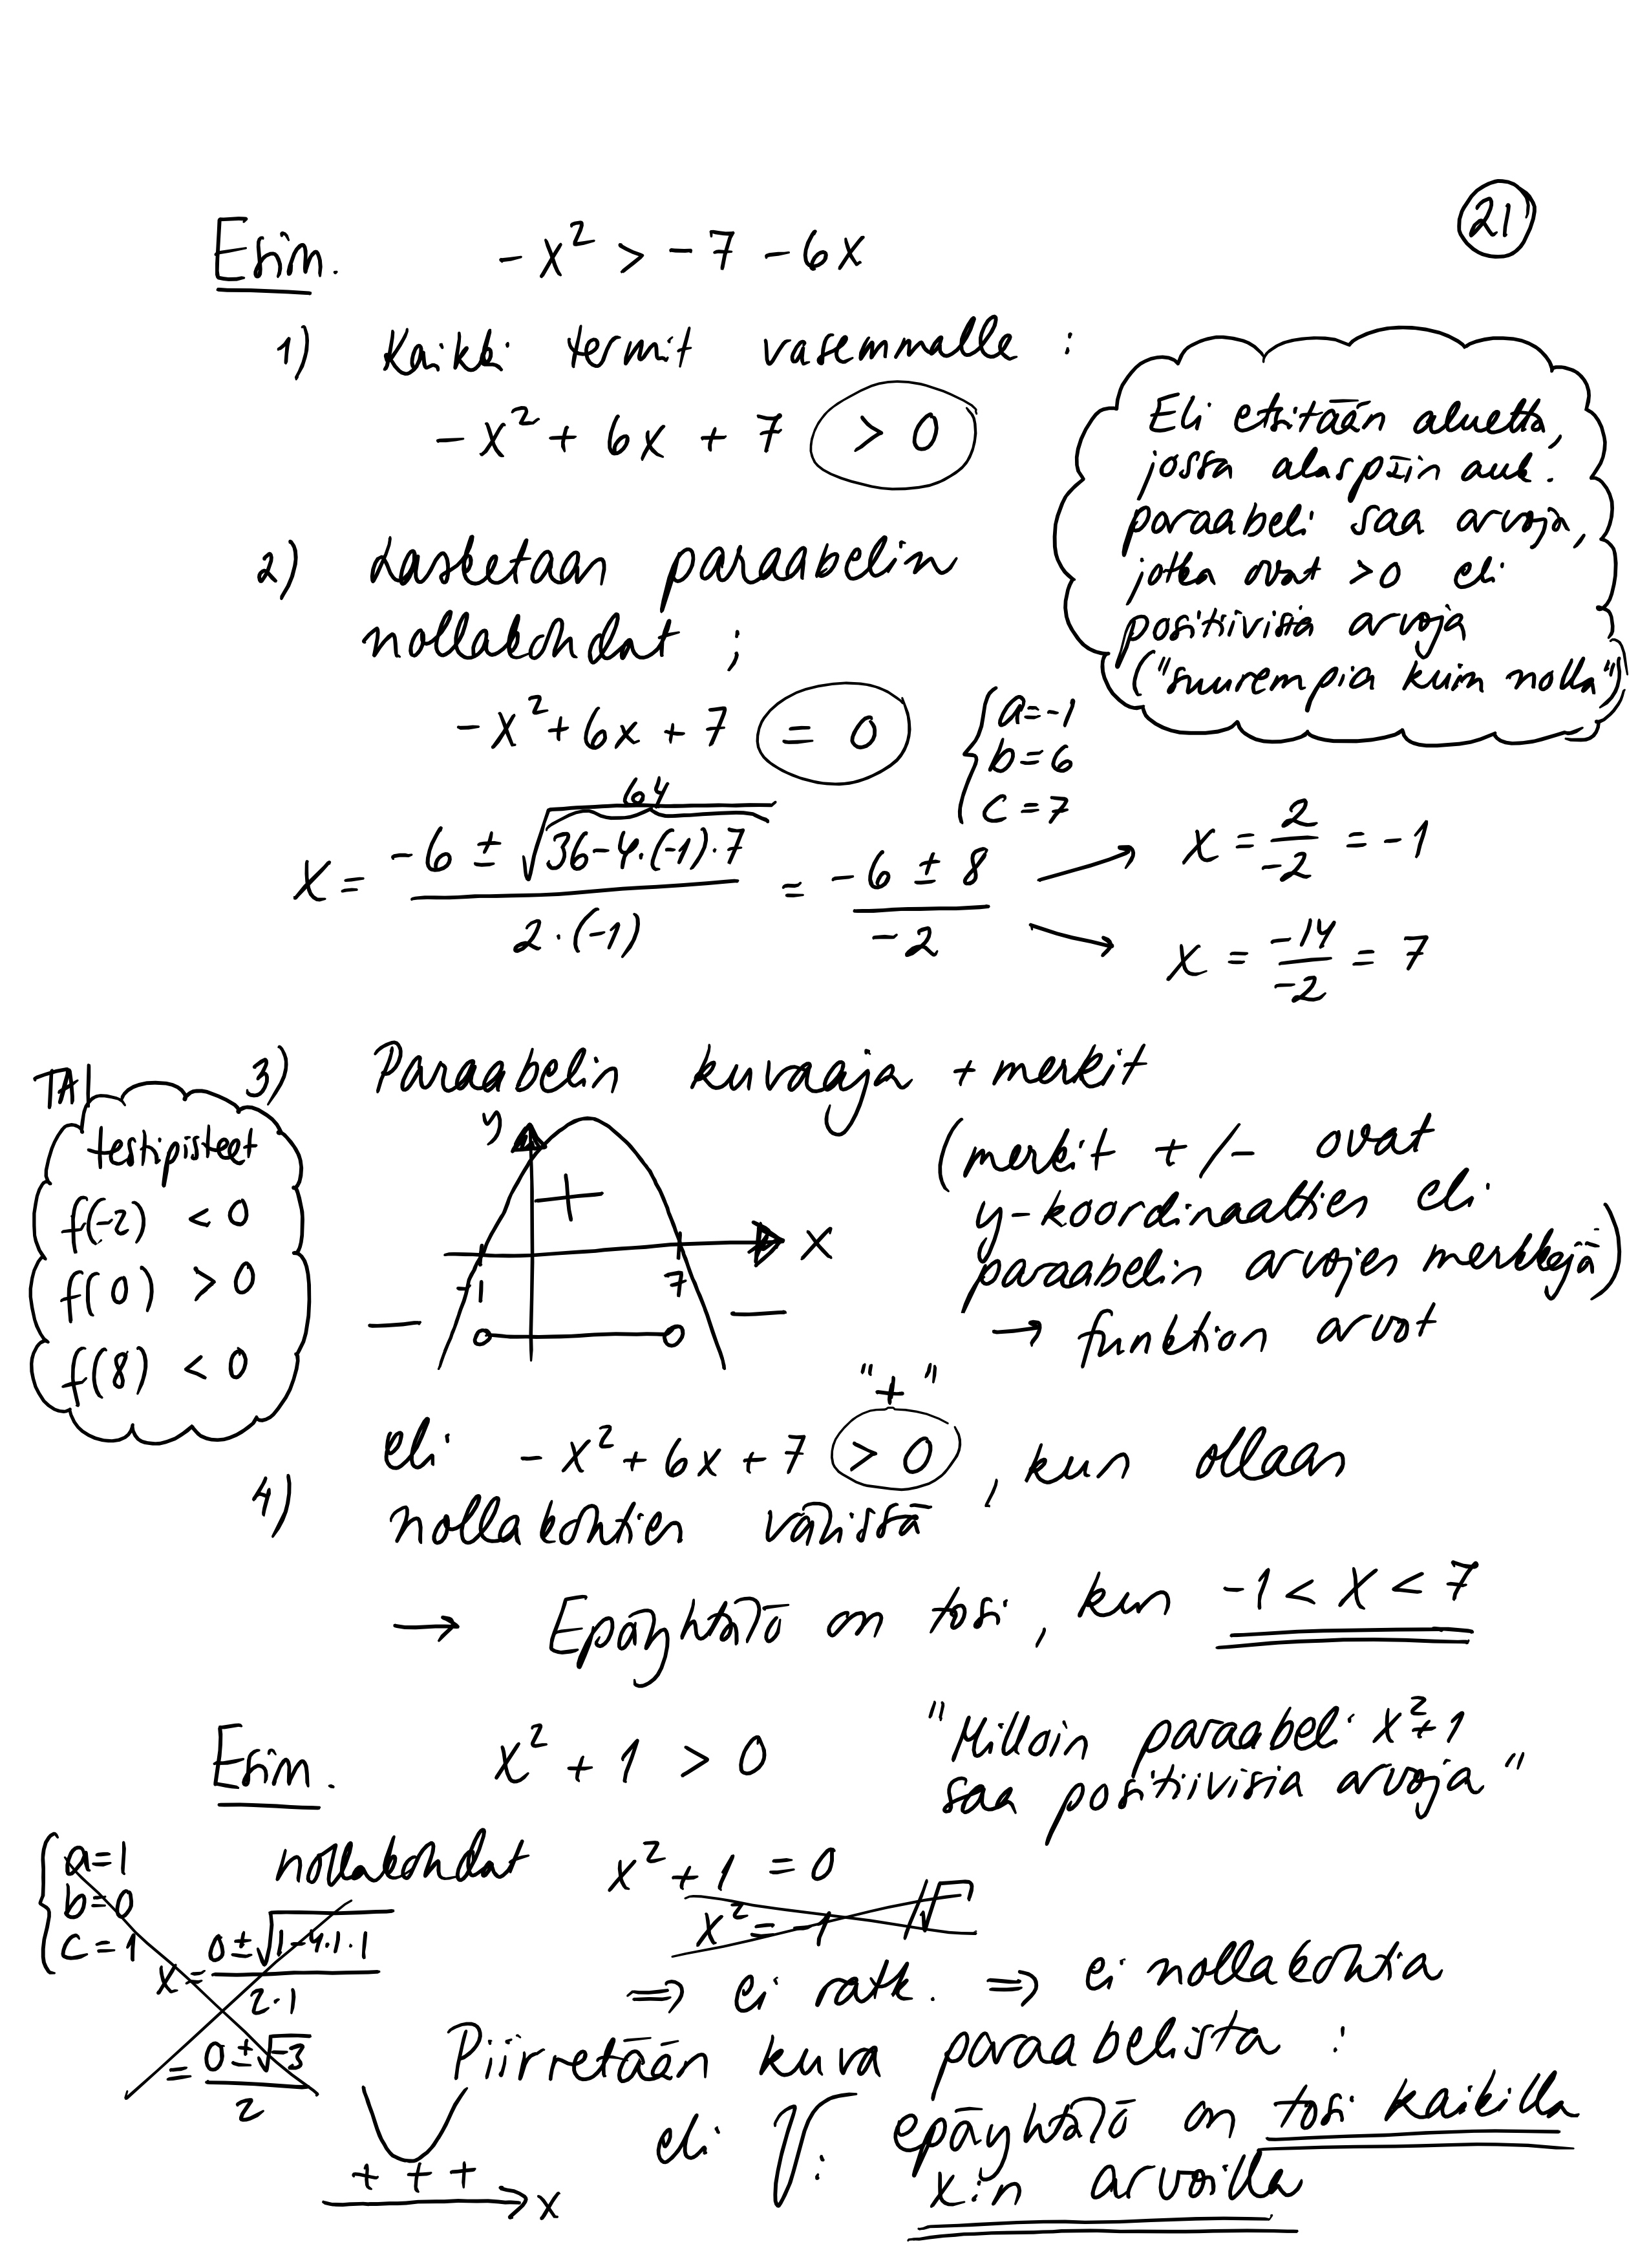 21
Esim. -x² > -7 - 6x
1) Kaikki termit vasemmalle :
-x² + 6x + 7 > 0
Eli etsitään aluetta,
jossa alaspäin auk.
paraabeli saa arvoja,
jotka ovat >0 eli
positiivisia arvoja
("suurempia kuin nolla")
2) Lasketaan paraabelin
nollakohdat ;
-x² + 6x + 7 = 0
{ a=-1
b=6
c=7
64
x = (-6 ± √(36-4·(-1)·7)) / (2·(-1)) = (-6 ± 8) / -2
→ x = 2/-2 = -1
→ x = -14/-2 = 7
3) Paraabelin kuvaaja + merkit
TAI
testipisteet
f(-2) < 0
f(0) > 0
f(8) < 0
y
+
x
-1 7
— —
(merkit +/- ovat
y-koordinaattien eli
paraabelin arvojen merkkejä)
→ funktion arvot
"+"
4) eli -x² + 6x + 7 > 0 , kun ollaan
nollakohtien välissä
→ Epäyhtälö on tosi, kun -1 < x < 7
Esim. x² + 1 > 0
"Milloin paraabeli x²+1
saa positiivisia arvoja"
nollakohdat x² + 1 = 0
x² = -1 |√
{ a=1
b=0
c=1
x = (0±√(1-4·1·1)) / (2·1)
= (0±√-3) / 2
⇒ ei ratk. ⇒ ei nollakohtia
Piirretään kuva paraabelista :
+ + +
x
eli V: epäyhtälö on tosi kaikilla
x:n arvoilla